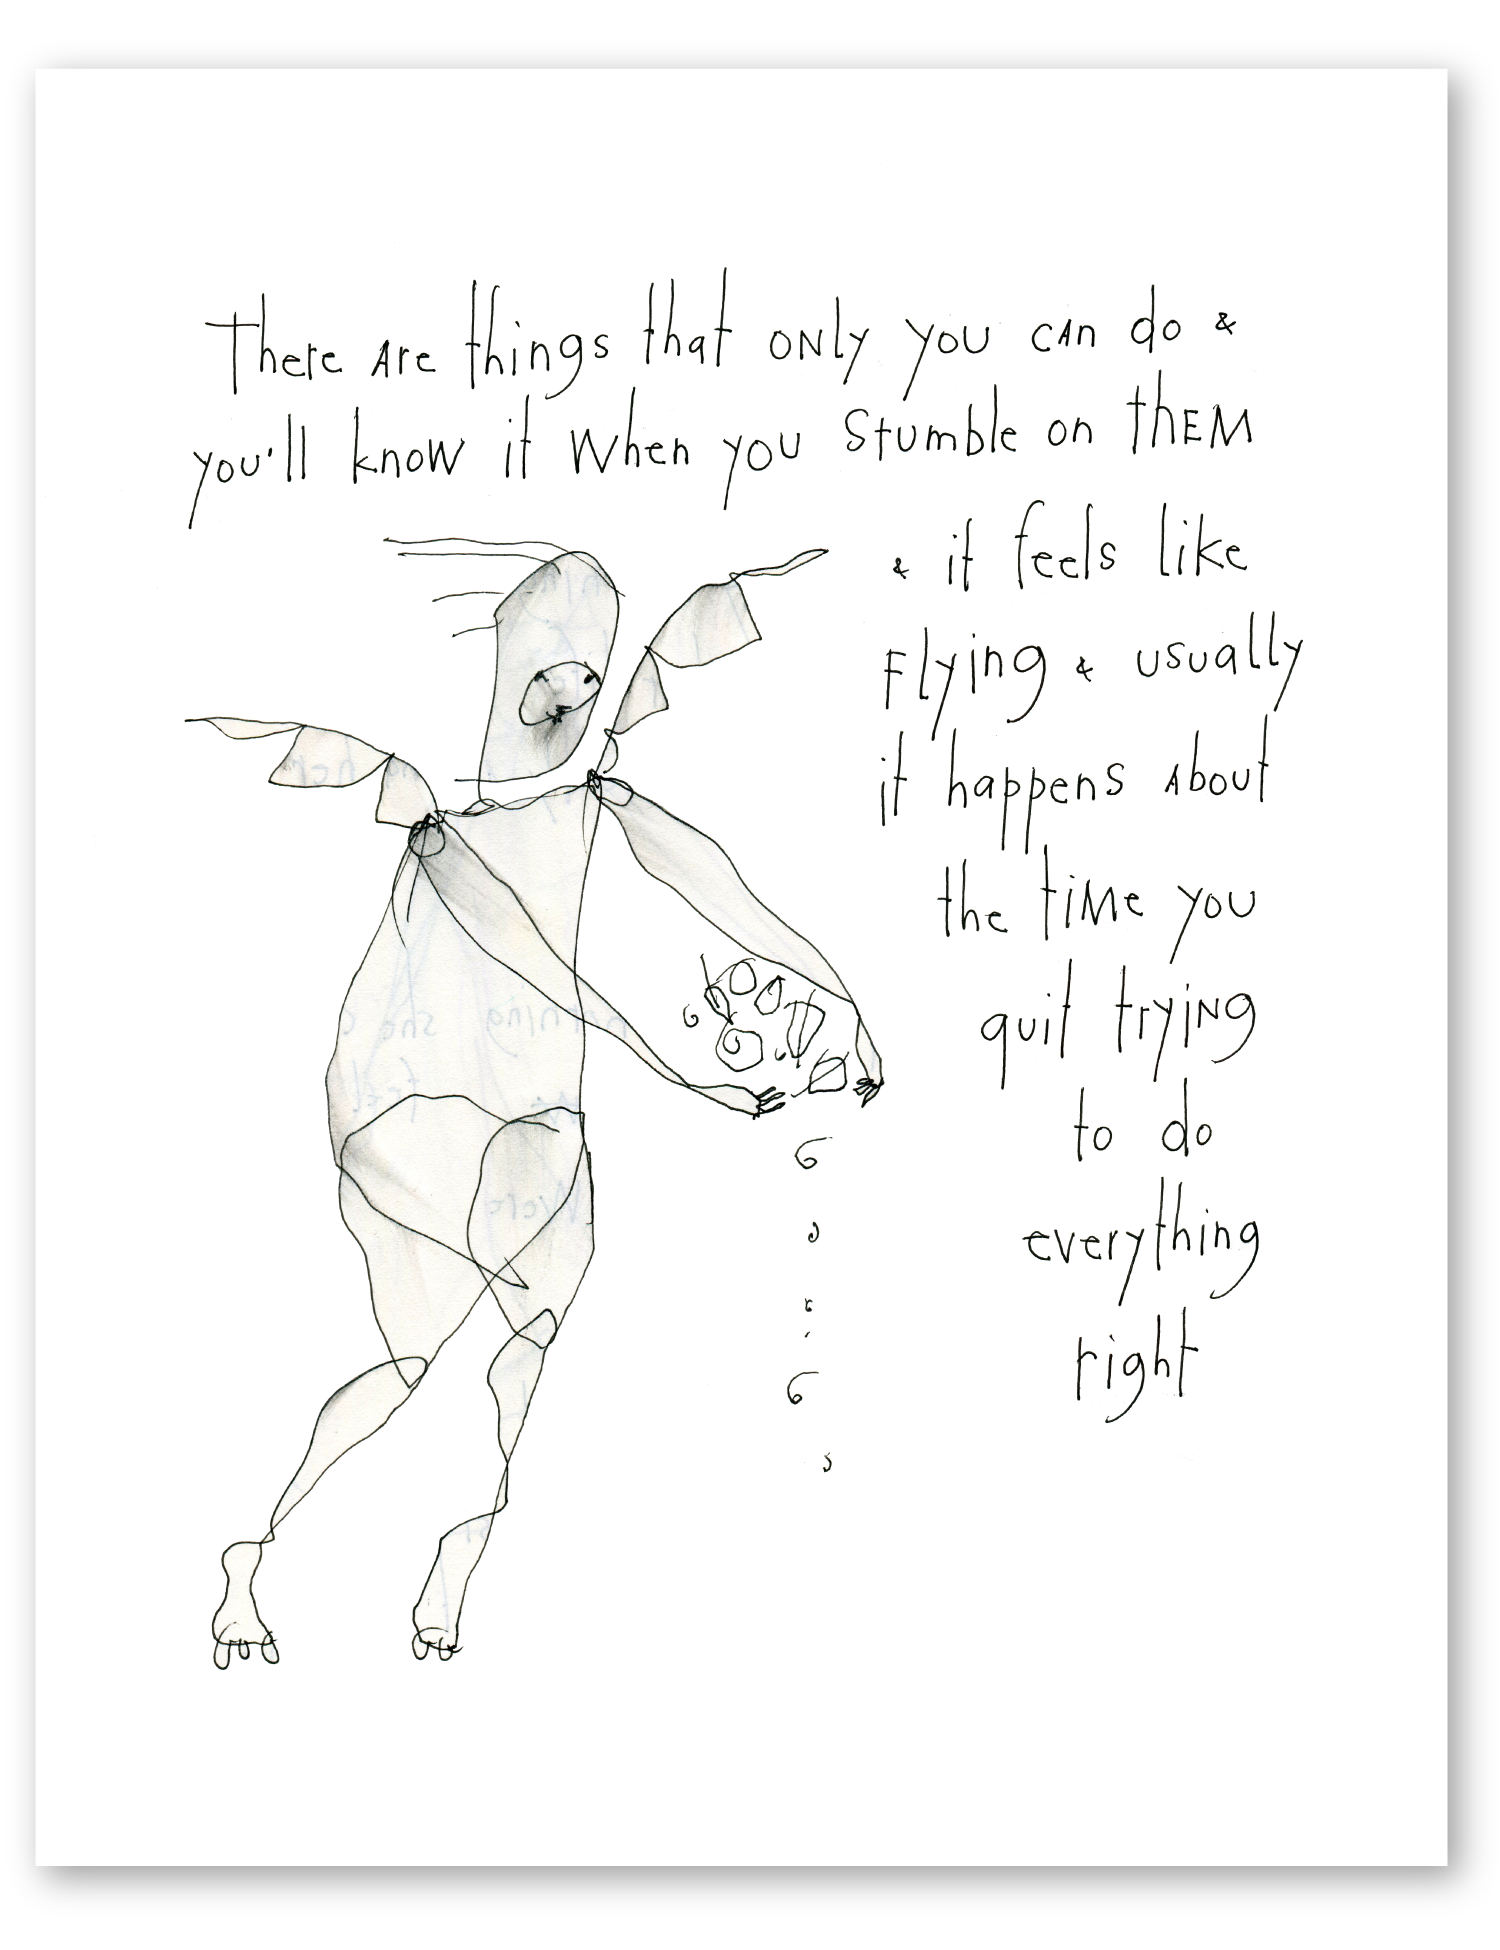 There are things that only you can do &
you'll know it when you stumble on them
& it feels like
flying & usually
it happens about
the time you
quit trying
to do
everything
right